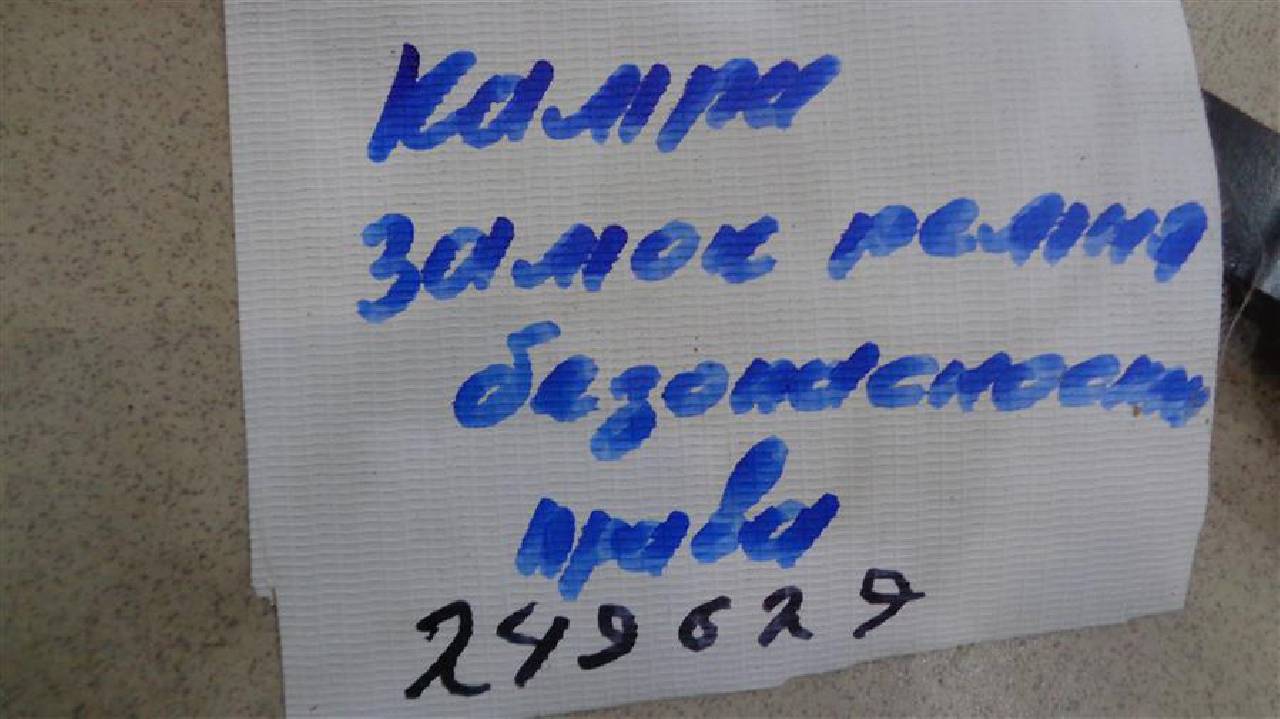 Камри
замок ремня
безопасности
права
249629